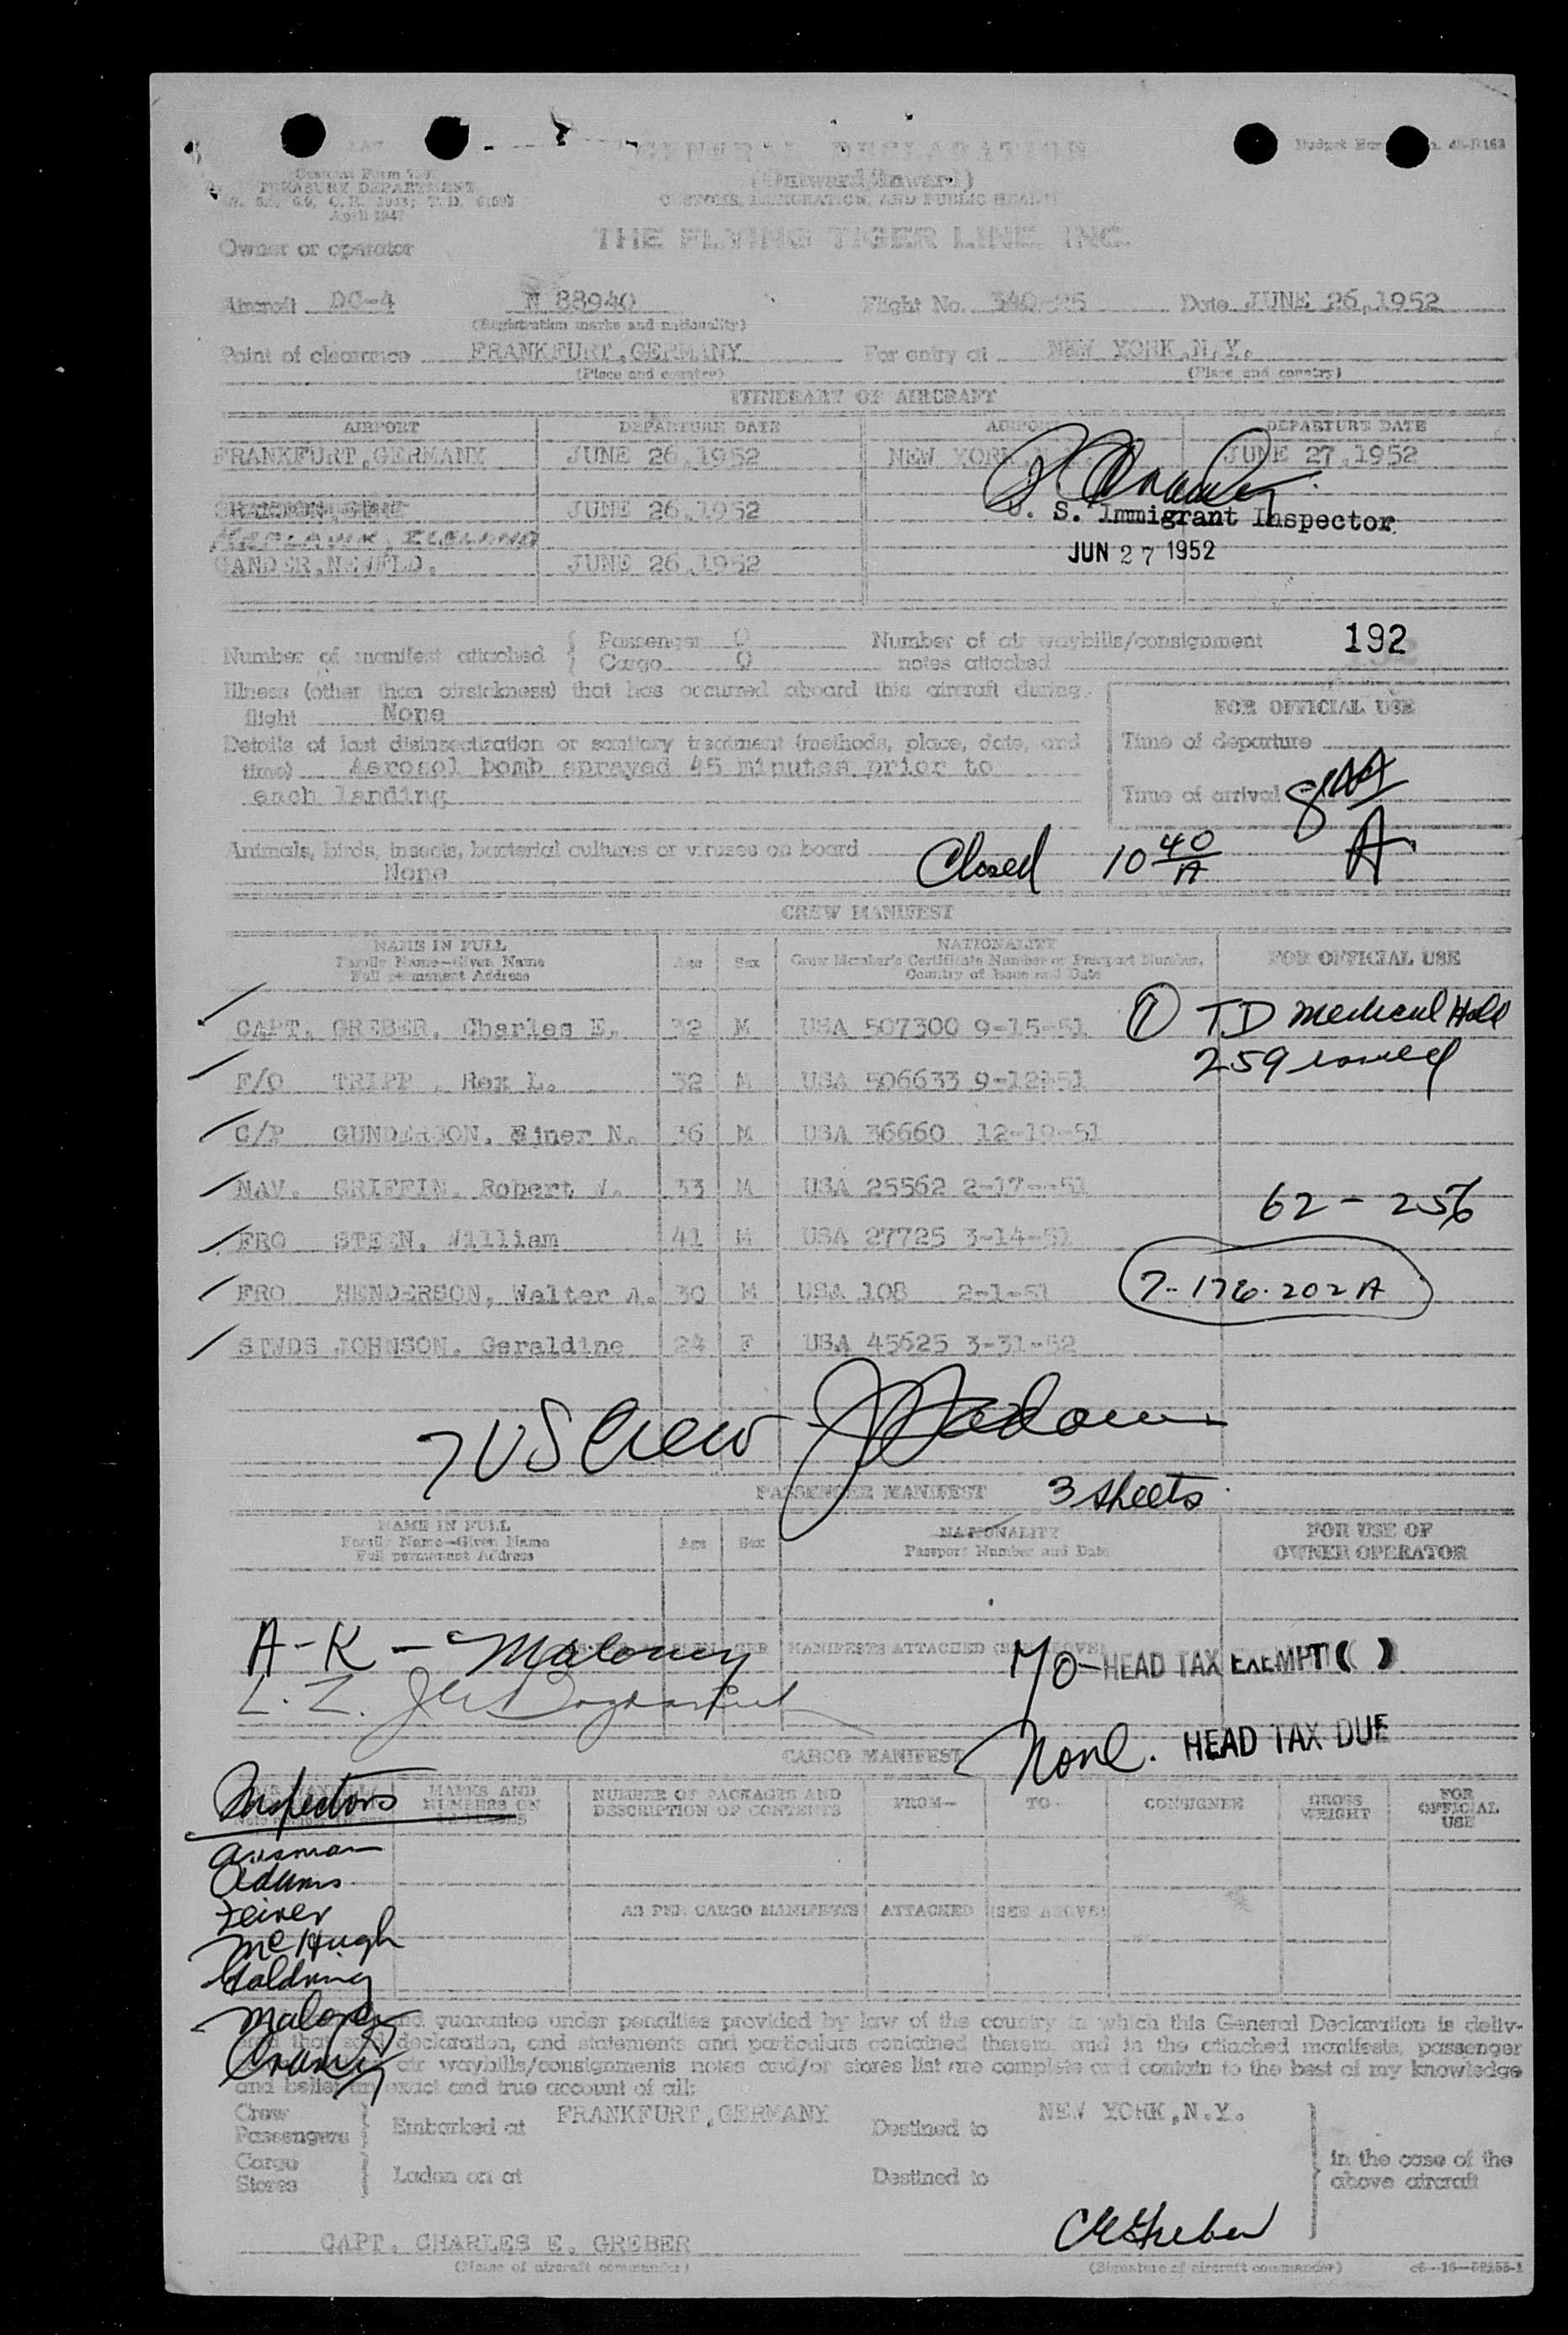 GENERAL DECLARATION
(Outward/Inward)
CUSTOMS, IMMIGRATION, AND PUBLIC HEALTH
Customs Form
TREASURY DEPARTMENT
April 1947
THE FLYING TIGER LINE, INC.
Owner or operator
Aircraft DC-4 N 88940 Flight No. 340-25 Date JUNE 26,1952
(Registration marks and nationality)
Point of clearance FRANKFURT,GERMANY For entry at NEW YORK,N.Y.
(Place and country) (Place and country)
ITINERARY OF AIRCRAFT
AIRPORT DEPARTURE DATE AIRPORT DEPARTURE DATE
FRANKFURT,GERMANY JUNE 26,1952 NEW YORK JUNE 27,1952
JUNE 26,1952
U. S. Immigrant Inspector
JUN 27 1952
GANDER,NEWFLD. JUNE 26,1952
Number of manifest attached { Passenger 0 Number of air waybills/consignment 192
Cargo 0 notes attached
Illness (other than airsickness) that has occurred aboard this aircraft during
flight None
FOR OFFICIAL USE
Details of last disinsectization or sanitary treatment (methods, place, date, and
Time of departure
time) Aerosol bomb sprayed 45 minutes prior to
each landing
Time of arrival
A
Animals, birds, insects, bacterial cultures or viruses on board
None
Closed 10 40/A
CREW MANIFEST
NAME IN FULL Age Sex NATIONALITY FOR OFFICIAL USE
Family Name—Given Name Crew Member's Certificate Number or Passport Number,
Full permanent Address Country of Issue and Date
CAPT. GREBER, Charles E. 32 M USA 507300 9-15-51 ① TD medical Hold
259 issued
F/O TRIPP , Rex L. 32 M USA 506633 9-12-51
C/P GUNDERSON, Einer N. 36 M USA 36660 12-19-51
NAV. GRIFFIN, Robert V. 33 M USA 25562 2-17--51
62 - 256
FRO STEEN, William 41 M USA 27725 3-14-51
FRO HENDERSON, Walter A. 30 M USA 108 2-1-51 7-176-202 A
STWDS JOHNSON, Geraldine 24 F USA 45625 3-31-52
7 US Crew J Adams
PASSENGER MANIFEST 3 sheets
NAME IN FULL Age Sex NATIONALITY FOR USE OF
Family Name—Given Name Passport Number and Date OWNER OPERATOR
Full permanent Address
A-K - Maloney
MANIFESTS ATTACHED
70- HEAD TAX EXEMPT ( )
L. Z.
None. HEAD TAX DUE
CARGO MANIFEST
Inspectors
MARKS AND NUMBERS ON PACKAGES NUMBER OF PACKAGES AND DESCRIPTION OF CONTENTS FROM— TO— CONSIGNEE GROSS WEIGHT FOR OFFICIAL USE
Adams
McHugh
AS PER CARGO MANIFESTS ATTACHED (SEE ABOVE)
Maloney
and guarantee under penalties provided by law of the country in which this General Declaration is deliv-
declaration, and statements and particulars contained therein, and in the attached manifests, passenger
air waybills/consignments notes and/or stores list are complete and contain to the best of my knowledge
and belief an exact and true account of all:
Crew
Passengers } Embarked at FRANKFURT,GERMANY Destined to NEW YORK,N.Y.
Cargo
Stores } Laden on at Destined to
in the case of the
above aircraft
CAPT. CHARLES E. GREBER CE Greber
(Name of aircraft commander) (Signature of aircraft commander)